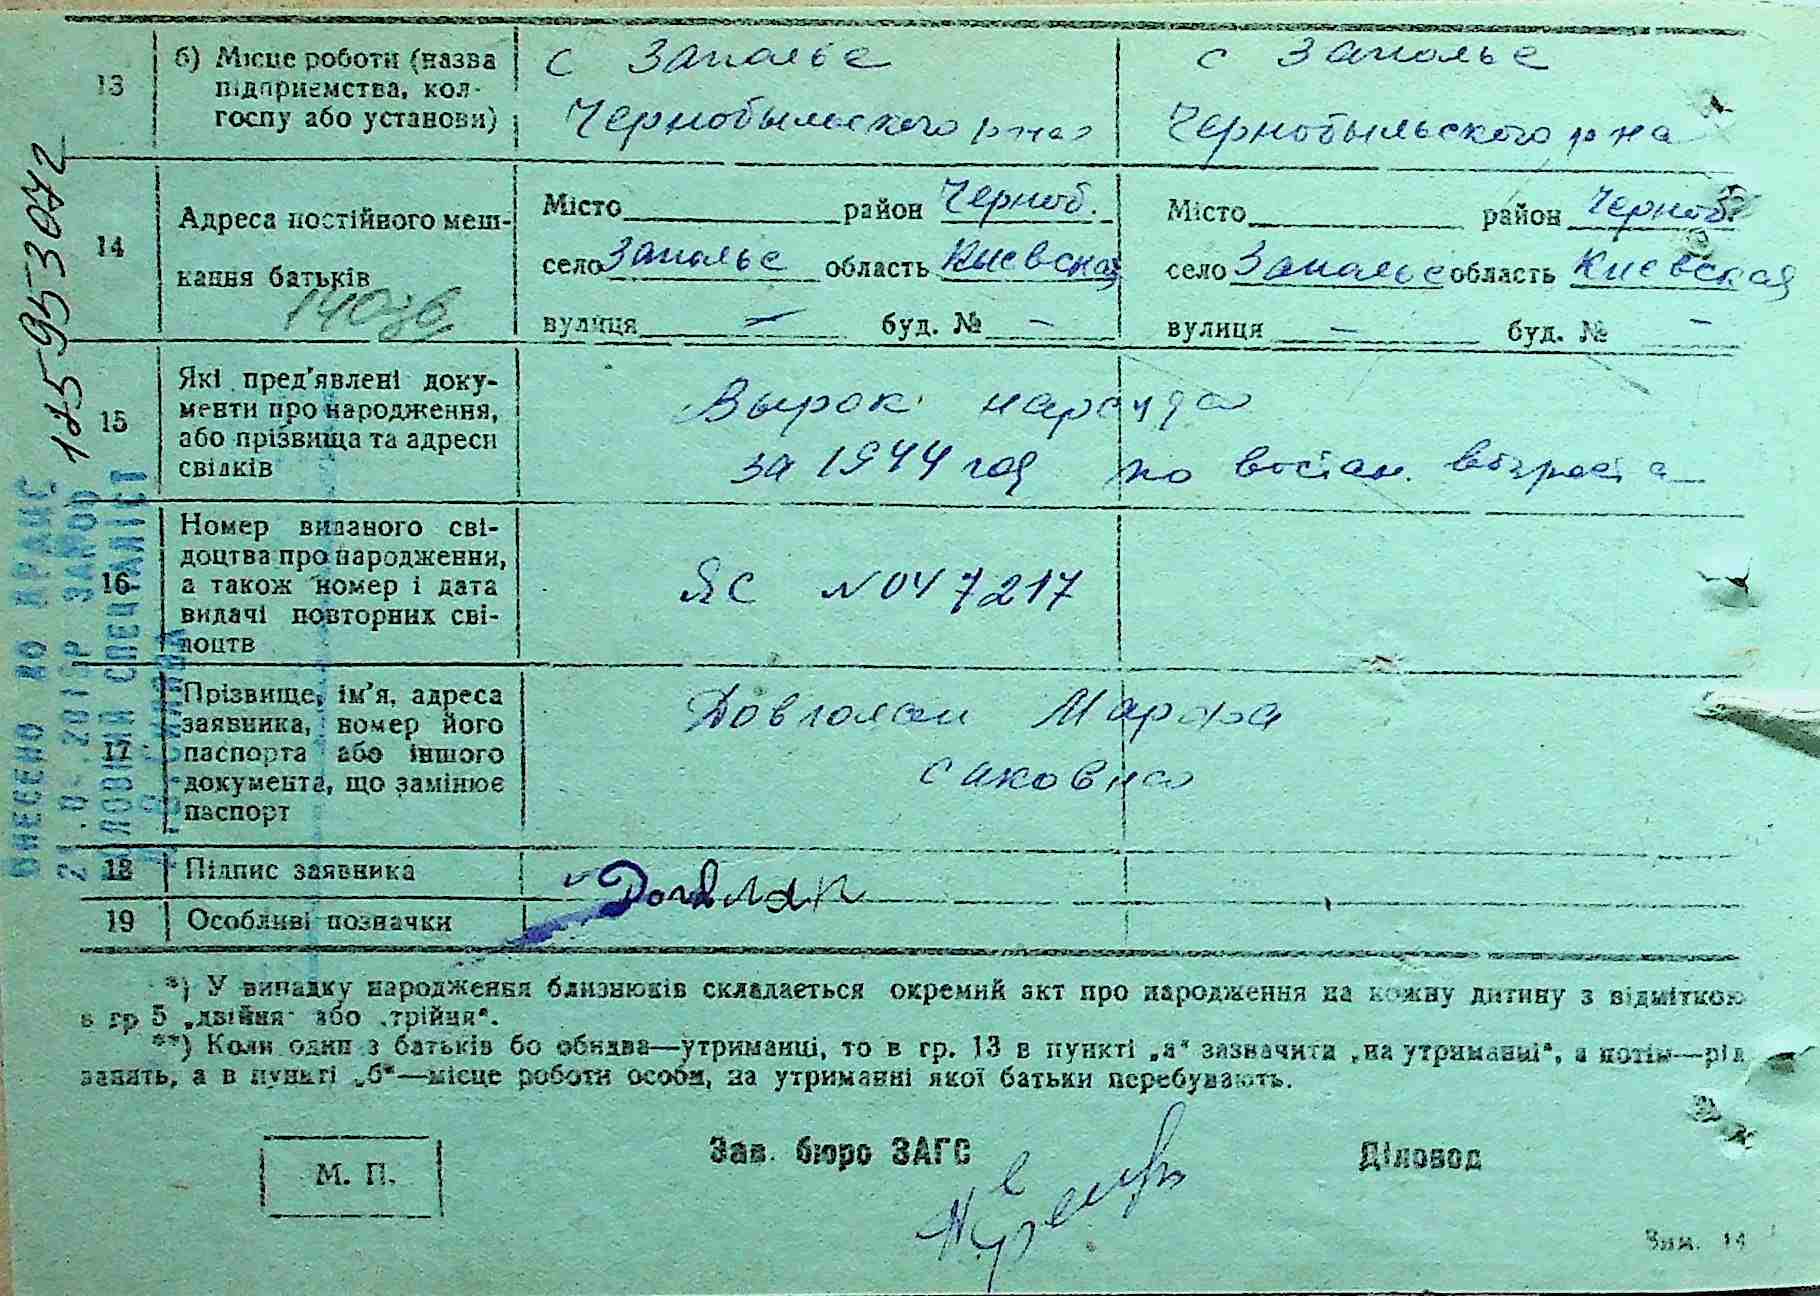 13
б) Місце роботи (назва підприємства, колгоспу або установи)
с Заполье
Чернобыльского р на
с Заполье
Чернобыльского р на
14
Адреса постійного мешкання батьків
Місто район Черноб.
село Заполье область Киевская
вулиця — буд. № —
Місто район Черноб.
село Заполье область Киевская
вулиця — буд. № —
17595953072
15
Які пред'явлені документи про народження,
або прізвища та адреси
свідків
за 1944 год по
16
Номер виданого свідоцтва про народження,
а також номер і дата
видачі повторних свідоцтв
ЯС N 047217
17
Прізвище, ім'я, адреса
заявника, номер його
паспорта або іншого
документа, що замінює
паспорт
Марфа
18
Підпис заявника
19
Особливі позначки
ВНЕСЕНО ДО ДРАЦС
*) У випадку народження близнюків складається окремий акт про народження на кожну дитину з відміткою
в гр 5 „двійня" або „трійня".
**) Коли один з батьків бо обидва—утриманці, то в гр. 13 в пункті „а" зазначити „на утриманні", а потім—рід
занять, а в пункті „б"—місце роботи особи, на утриманні якої батьки перебувають.
М. П.
Зав. бюро ЗАГС
Діловод
Зам. 14